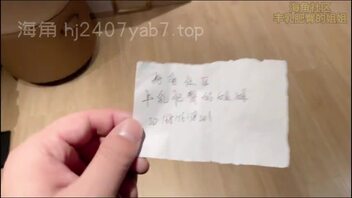 海角 hj2407yab7.top
海角社区
丰乳肥臀的姐姐
海角社区
丰乳肥臀的姐姐